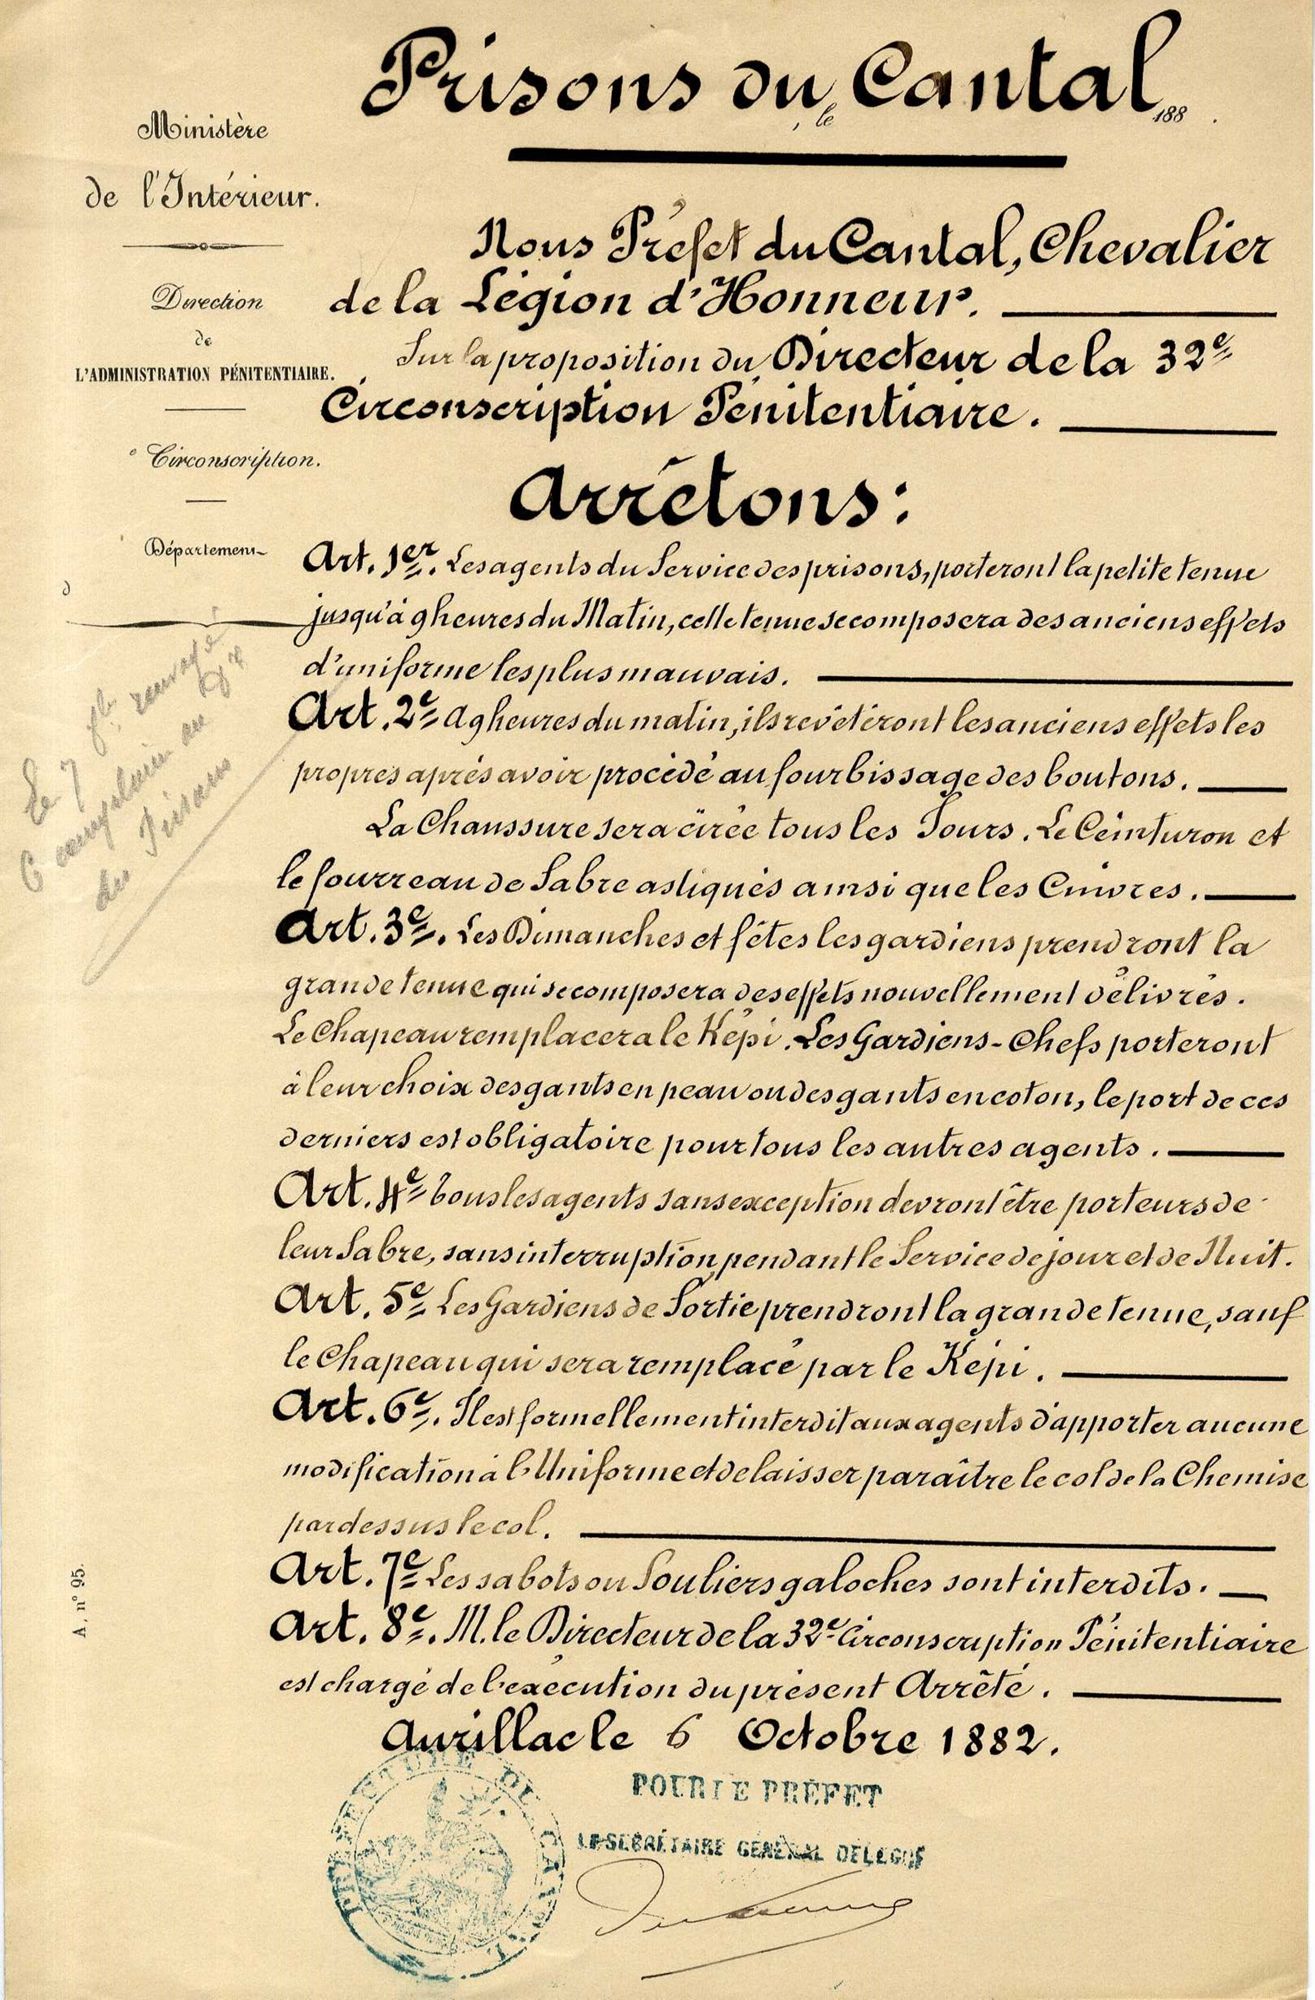 Prisons du Cantal
, le 188 .
Ministère
de l'Intérieur.
Direction
de
L'ADMINISTRATION PÉNITENTIAIRE.
e Circonscription.
Département
d
Nous Préfet du Cantal, Chevalier
de la Légion d'Honneur.
Sur la proposition du Directeur de la 32e
Circonscription Pénitentiaire.
Arrêtons:
Art. 1er. Les agents du Service des prisons, porteront la petite tenue
jusqu'à 9 heures du Matin, cette tenue se composera des anciens effets
d'uniforme les plus mauvais.
Art. 2e A 9 heures du matin, ils revêtiront les anciens effets les
propres après avoir procédé au fourbissage des boutons.
La Chaussure sera cirée tous les Jours. Le Ceinturon et
le fourreau de Sabre astiqués ainsi que les Cuivres.
Art. 3e. Les Dimanches et fêtes les gardiens prendront la
grande tenue qui se composera des effets nouvellement délivrés.
Le Chapeau remplacera le Képi. Les Gardiens-Chefs porteront
à leur choix des gants en peau ou des gants en coton, le port de ces
derniers est obligatoire pour tous les autres agents.
Art. 4e Tous les agents sans exception devront être porteurs de
leur Sabre, sans interruption, pendant le Service de jour et de Nuit.
Art. 5e Les Gardiens de Sortie prendront la grande tenue, sauf
le Chapeau qui sera remplacé par le Képi.
Art. 6e. Il est formellement interdit aux agents d'apporter aucune
modification à l'Uniforme et de laisser paraître le col de la Chemise
par dessus le col.
Art. 7e Les sabots ou Souliers galoches sont interdits.
Art. 8e. M. le Directeur de la 32e Circonscription Pénitentiaire
est chargé de l'exécution du présent Arrêté.
Aurillac le 6 Octobre 1882.
POUR LE PRÉFET
LE SECRÉTAIRE GENÉRAL DELEGUÉ
PRÉFECTURE DU CANTAL
Le 7 renvoyé
6 au
des Prisons
A. n° 95.